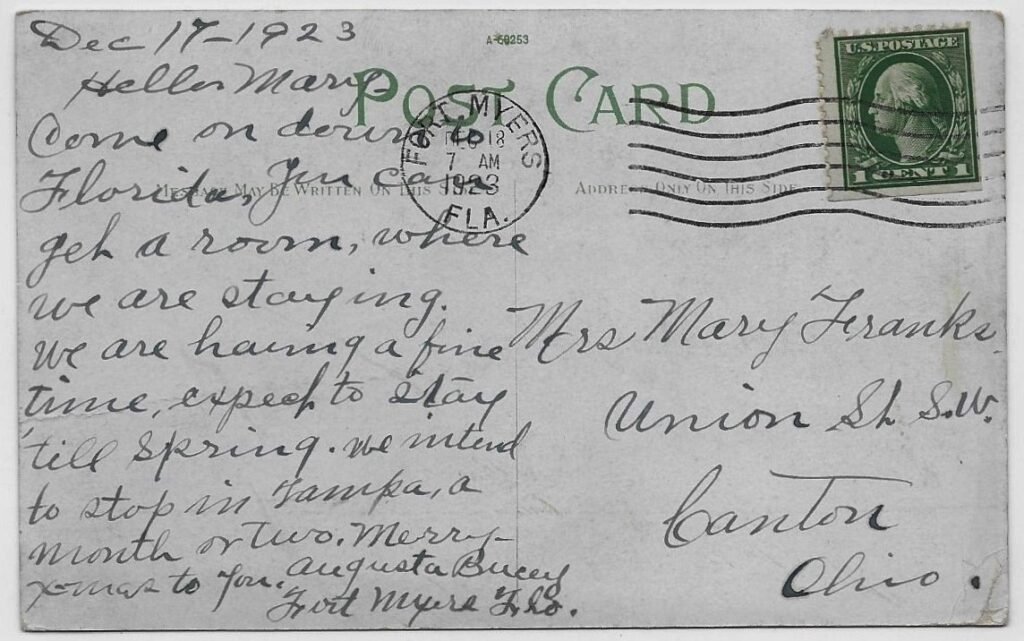 Dec 17-1923
A-69253
Hello Mary
POST CARD
FORT MYERS
18
7 AM
1923
FLA.
U.S. POSTAGE
1 CENT 1
Come on down to
MESSAGE MAY BE WRITTEN ON THIS SIDE
ADDRESS ONLY ON THIS SIDE
Florida, You can
get a room, where
we are staying.
we are having a fine
time, expect to stay
'till Spring. we intend
to stop in Tampa, a
month or two. Merry-
X-mas to You.
Augusta Bucey
Fort Myers Flo.
Mrs Mary Franks.
Union St S.W.
Canton
Ohio.